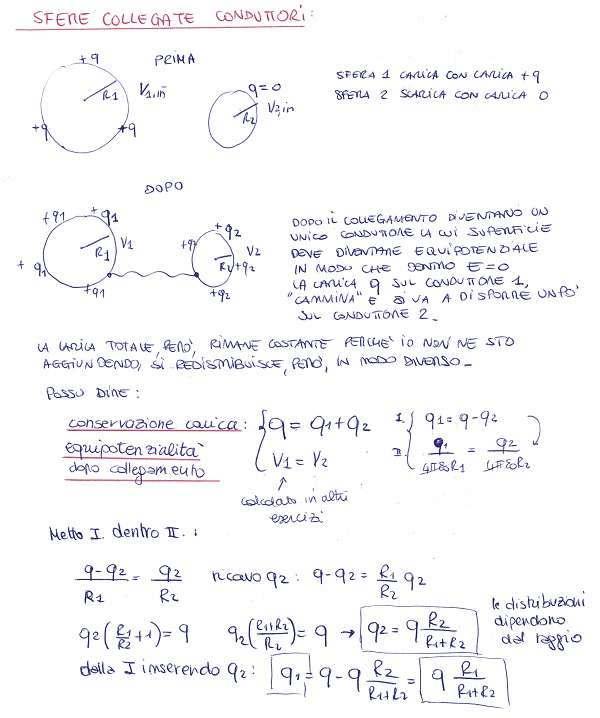 SFERE COLLEGATE CONDUTTORI:
+q PRIMA
R1 V1,in
q=0
V2,in
R2
+q +q
SFERA 1 CARICA CON CARICA +q
SFERA 2 SCARICA CON CARICA 0
DOPO
+q1 +q1
R1 V1
+q1
+q1
+q2
+q2
V2
R2 +q2
+q2
DOPO IL COLLEGAMENTO DIVENTANO UN
UNICO CONDUTTORE LA CUI SUPERFICIE
DEVE DIVENTARE EQUIPOTENZIALE
IN MODO CHE DENTRO E=0
LA CARICA q SUL CONDUTTORE 1,
"CAMMINA" E SI VA A DISPORRE UN PO'
SUL CONDUTTORE 2.
LA CARICA TOTALE, PERO', RIMANE COSTANTE PERCHE' IO NON NE STO
AGGIUNGENDO, SI REDISTRIBUISCE, PERO', IN MODO DIVERSO_
POSSO DIRE:
conservazione carica: q = q1+q2
equipotenzialità V1 = V2
dopo collegamento
I. q1 = q-q2
II. q1/4πε0R1 = q2/4πε0R2
calcolato in altri
esercizi
Metto I. dentro II. :
q-q2/R1 = q2/R2 ricavo q2: q-q2 = R1/R2 q2
q2(R1/R2+1) = q q2(R1+R2/R2) = q → q2 = q R2/R1+R2
le distribuzioni
dipendono
dal raggio
dalla I inserendo q2: q1 = q - q R2/R1+R2 = q R1/R1+R2